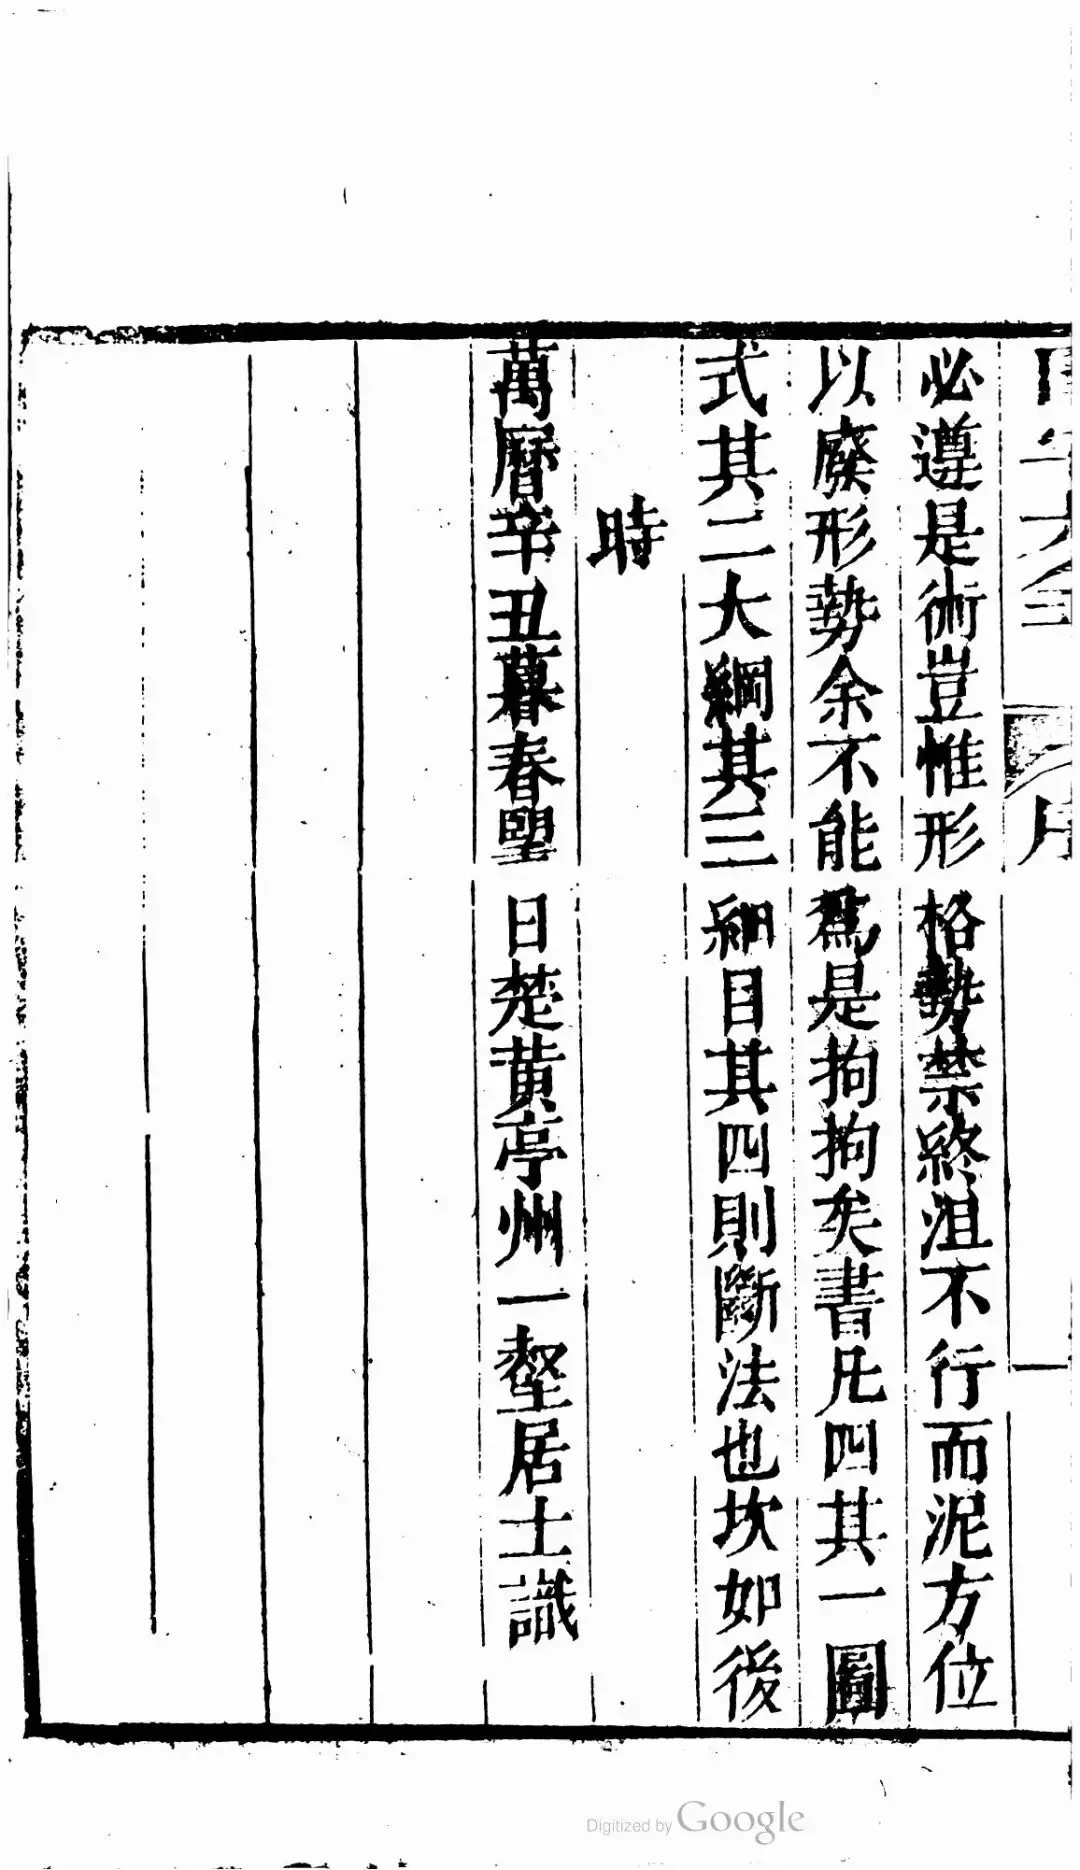 必遵是術豈惟形格勢禁終沮不行而泥方位
以廢形勢余不能爲是拘拘矣書凡四其一圖
式其二大綱其三細目其四則斷法也坎如後
時
萬曆辛丑暮春望日楚黃亭州一壑居士識
Digitized by Google